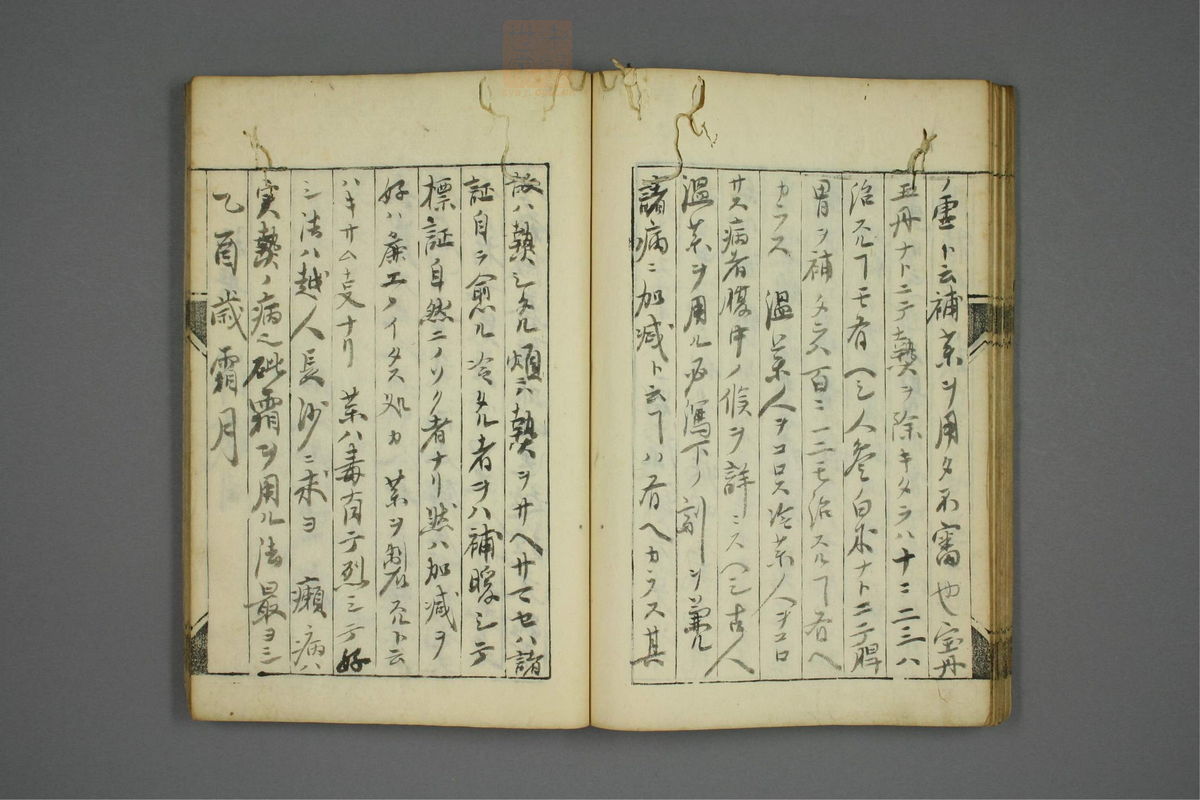 ノ虚ト云補薬ヲ用タ不審也宝丹
玉丹ナトニテ熱ヲ除キタラハ十ニ二三ハ
治スルヿモ有ヘシ人参白朮ナトニテ脾
胃ヲ補タラハ百ニ一二モ治スルヿ有ヘ
カラス 温薬人ヲコロス冷薬ノ人ヲコロ
サス病者腹中ノ候ヲ詳ニスヘシ古人
温薬ヲ用ル必瀉下ノ剤ヲ兼ル
諸病ニ加減ト云ヿハ有ヘカラス其
故ハ熱シタル煩ニハ熱ヲサヘサマセハ諸
証自ラ愈ル冷タル者ヲハ補暖シテ
標証自然ニノソク者ナリ然ハ加減ヲ
好ハ庸工ノイタス処カ 薬ヲ製スルト云
ハキサム支ナリ 薬ハ毒有テ烈シテ好
シ法ハ越人長沙ニ求ヨ 癩病ハ
実熱ノ病也砒霜ヲ用ル法最ヨシ
乙酉歳霜月